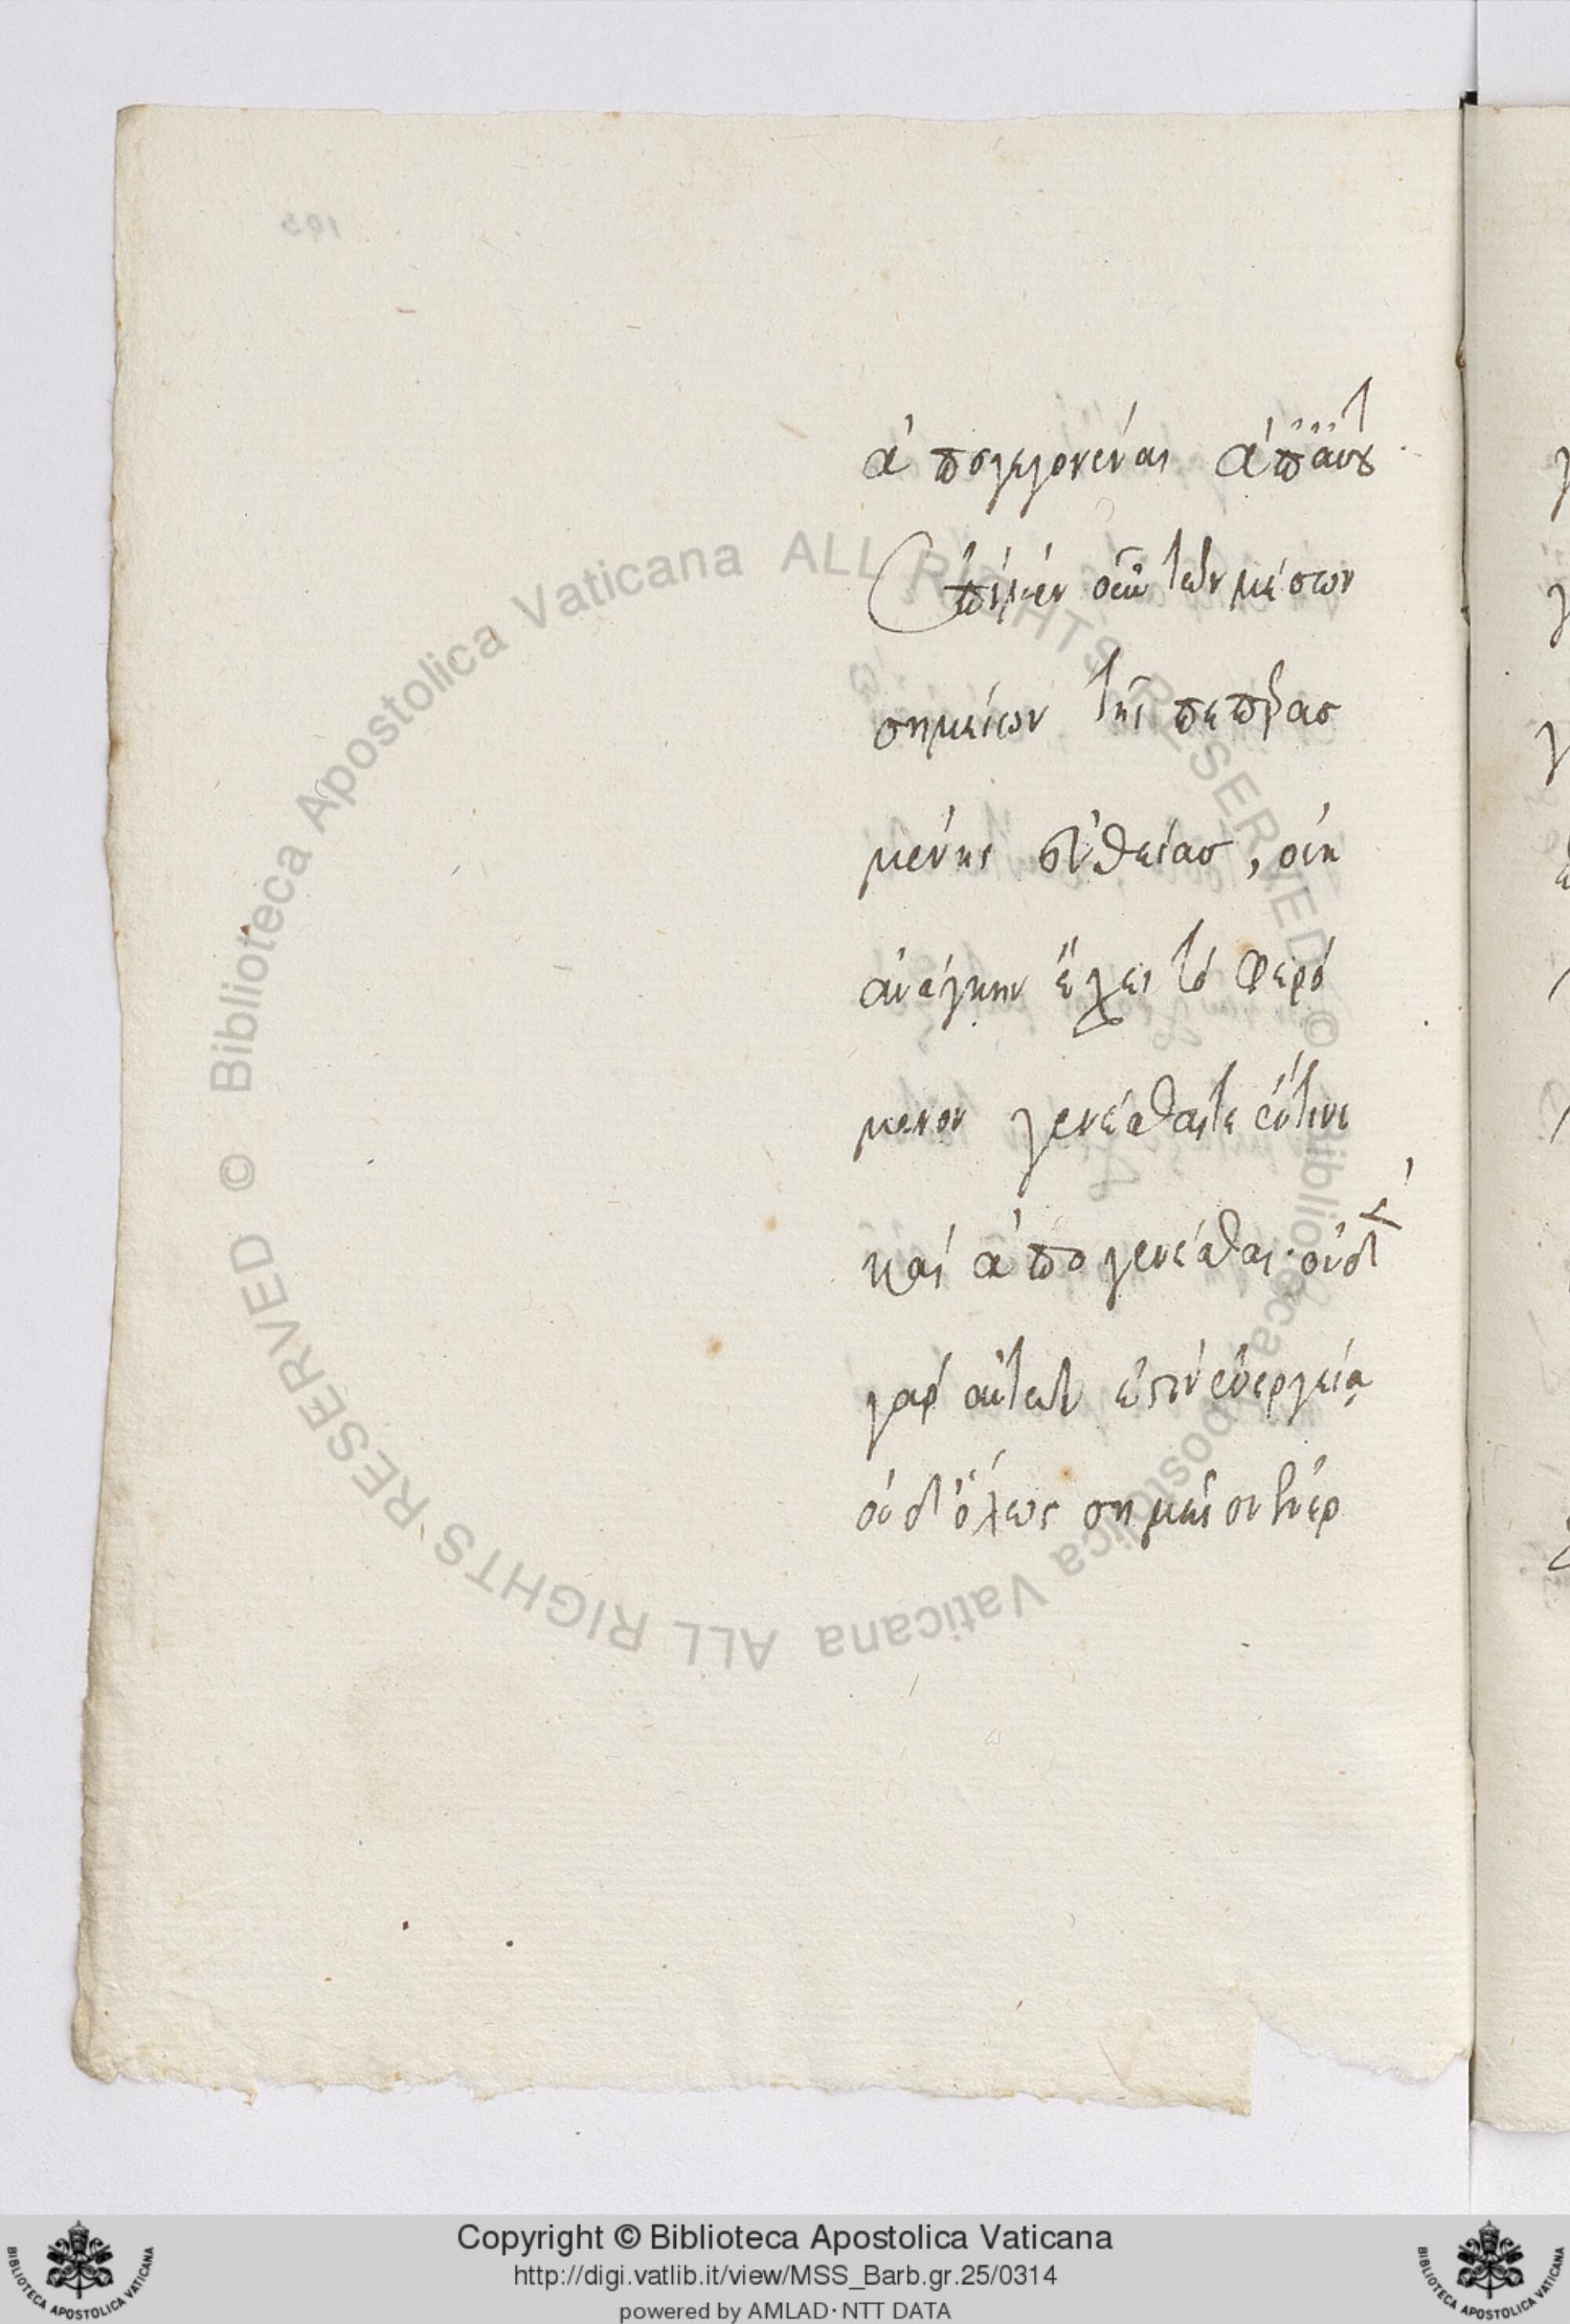 ἀπογεγονέναι ἀπ' αὐτοῦ.
Ἐπὶ μὲν οὖν τῶν μέσων
σημείων τῆς πεπερασ
μένης εὐθείας, οὐκ
ἀνάγκην ἔχει τὸ φερό
μενον γενέσθαι τε ἔν τινι
καὶ ἀπογενέσθαι· οὐδὲ
γὰρ αὐτῶν ἐστὶν ἐνεργείᾳ
οὐδ' ὅλως σημεῖον
Biblioteca Apostolica Vaticana ALL RIGHTS RESERVED ©
Biblioteca Apostolica Vaticana ALL RIGHTS RESERVED ©
Copyright © Biblioteca Apostolica Vaticana
http://digi.vatlib.it/view/MSS_Barb.gr.25/0314
powered by AMLAD · NTT DATA
BIBLIOTECA APOSTOLICA VATICANA
BIBLIOTECA APOSTOLICA VATICANA